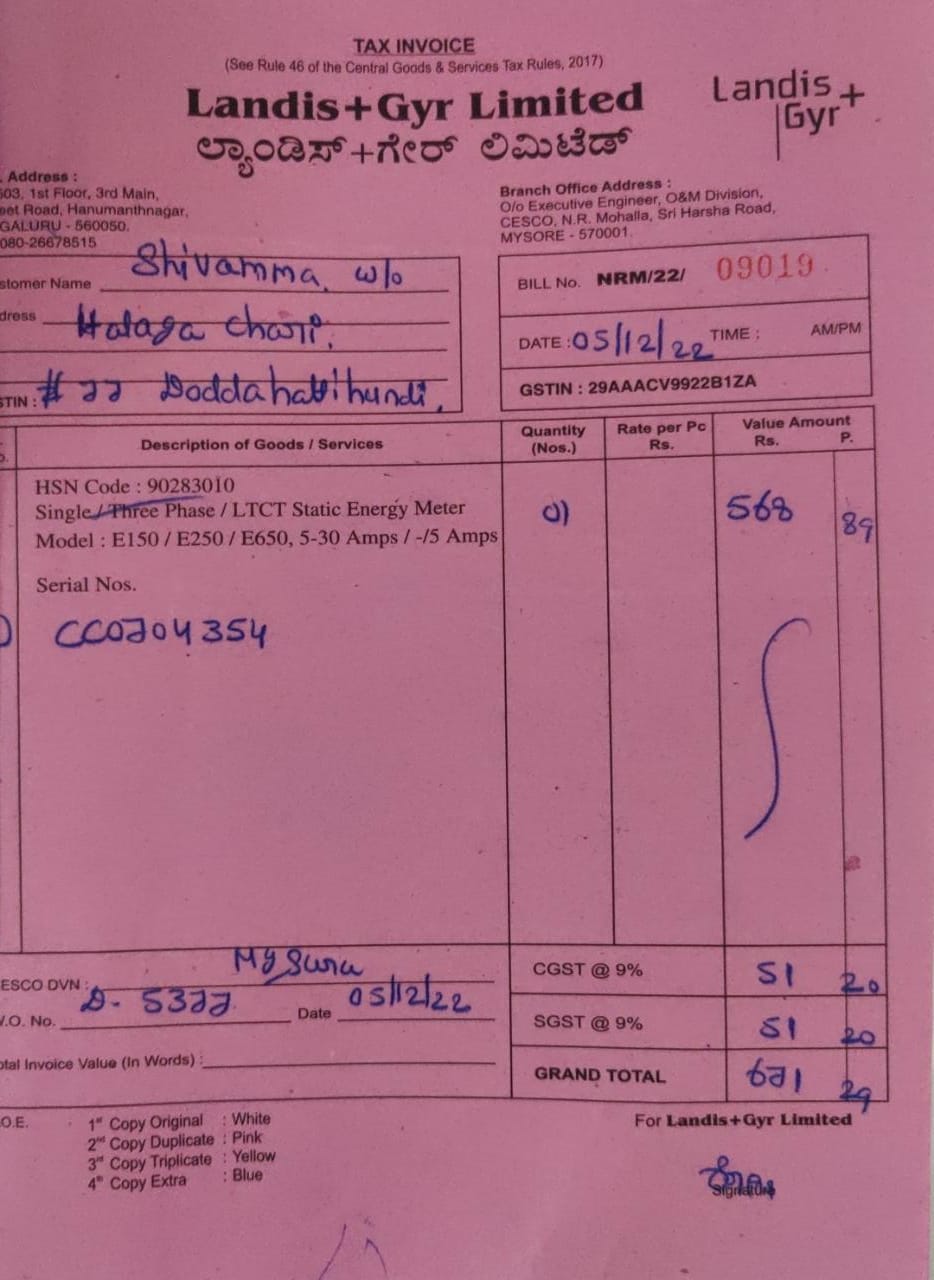 TAX INVOICE
(See Rule 46 of the Central Goods & Services Tax Rules, 2017)
Landis+Gyr Limited
ಲ್ಯಾಂಡಿಸ್+ಗೇರ್ ಲಿಮಿಟೆಡ್
Landis
Gyr+
. Address :
603, 1st Floor, 3rd Main,
eet Road, Hanumanthnagar,
GALURU - 560050.
080-26678515
Branch Office Address :
O/o Executive Engineer, O&M Division,
CESCO, N.R. Mohalla, Sri Harsha Road,
MYSORE - 570001.
stomer Name Shivamma w/o
dress Halaga Chari,
STIN : # 77 Doddahattihundi,
BILL No. NRM/22/ 09019
DATE : 05/12/22 TIME : AM/PM
GSTIN : 29AAACV9922B1ZA
Description of Goods / Services
Quantity (Nos.)
Rate per Pc Rs.
Value Amount
Rs. P.
HSN Code : 90283010
Single / Three Phase / LTCT Static Energy Meter 01 568 89
Model : E150 / E250 / E650, 5-30 Amps / -/5 Amps
Serial Nos.
CC0704354
ESCO DVN : Mysuru
V.O. No. D- 5377 Date 05/12/22
otal Invoice Value (In Words) :
CGST @ 9% 51 20
SGST @ 9% 51 20
GRAND TOTAL 671 29
.O.E.
1st Copy Original : White
2nd Copy Duplicate : Pink
3rd Copy Triplicate : Yellow
4th Copy Extra : Blue
For Landis+Gyr Limited
Signature